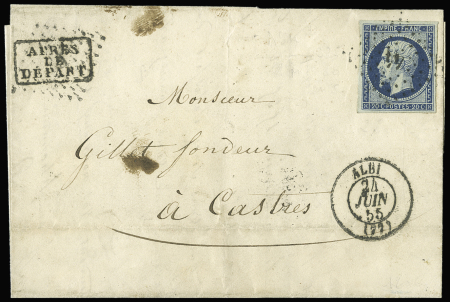 APRÈS
LE
DÉPART
EMPIRE FRANC
20 C POSTES 20 C
Monsieur
Gillet fondeur
à Castres
ALBI
24
JUIN
55
(77)